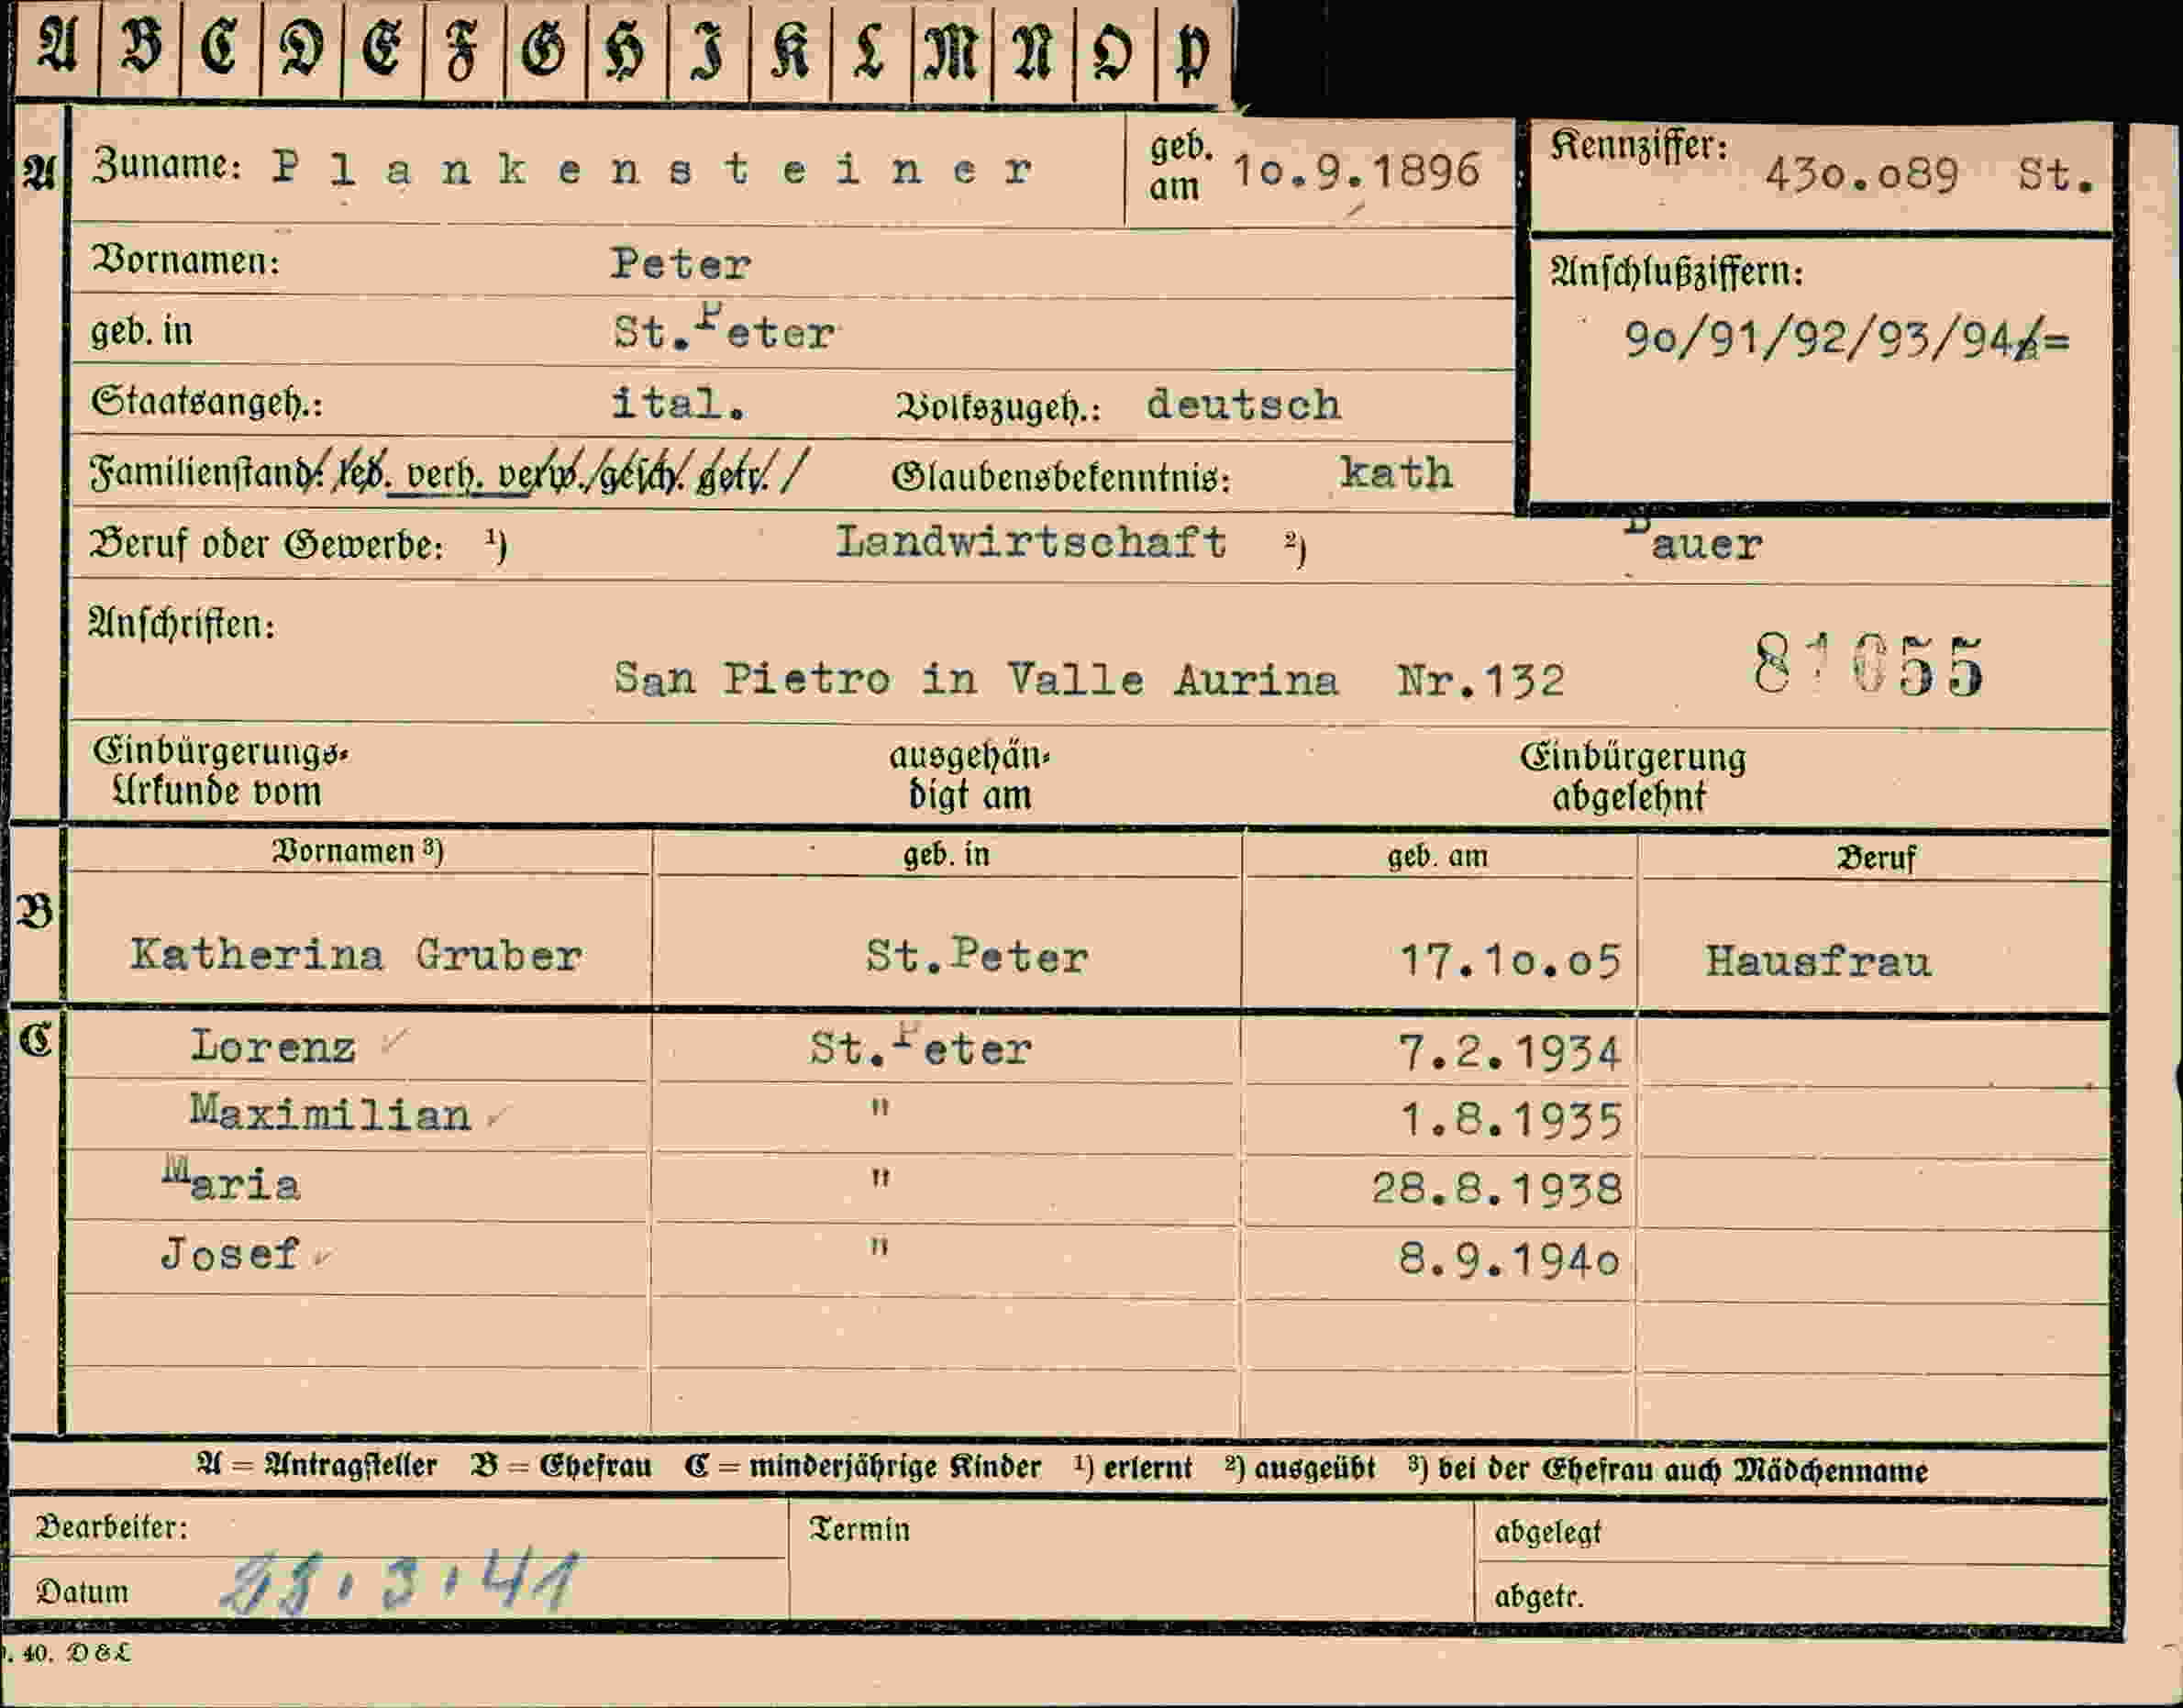 A B C D E F G H I K L M N O P
A Zuname: Plankensteiner geb. am 10.9.1896 Kennziffer: 430.089 St.
Vornamen: Peter
Anschlußziffern:
geb. in St.Peter
90/91/92/93/94/=
Staatsangeh.: ital. Volkszugeh.: deutsch
Familienstand: led. verh. verw. gesch. getr. Glaubensbekenntnis: kath
Beruf oder Gewerbe: 1) Landwirtschaft 2) Bauer
Anschriften:
San Pietro in Valle Aurina Nr.132 81055
Einbürgerungs- ausgehän- Einbürgerung
Urkunde vom digt am abgelehnt
Vornamen 3) geb. in geb. am Beruf
B
Katherina Gruber St.Peter 17.10.05 Hausfrau
C Lorenz St.Peter 7.2.1934
Maximilian " 1.8.1935
Maria " 28.8.1938
Josef " 8.9.1940
A = Antragsteller B = Ehefrau C = minderjährige Kinder 1) erlernt 2) ausgeübt 3) bei der Ehefrau auch Mädchenname
Bearbeiter: Termin abgelegt
Datum 3.41 abgetr.
. 40. D & L